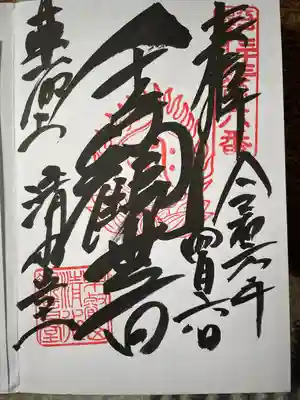 奉拝
令和六年
四月六日
千手観世音
東叡山
清水堂